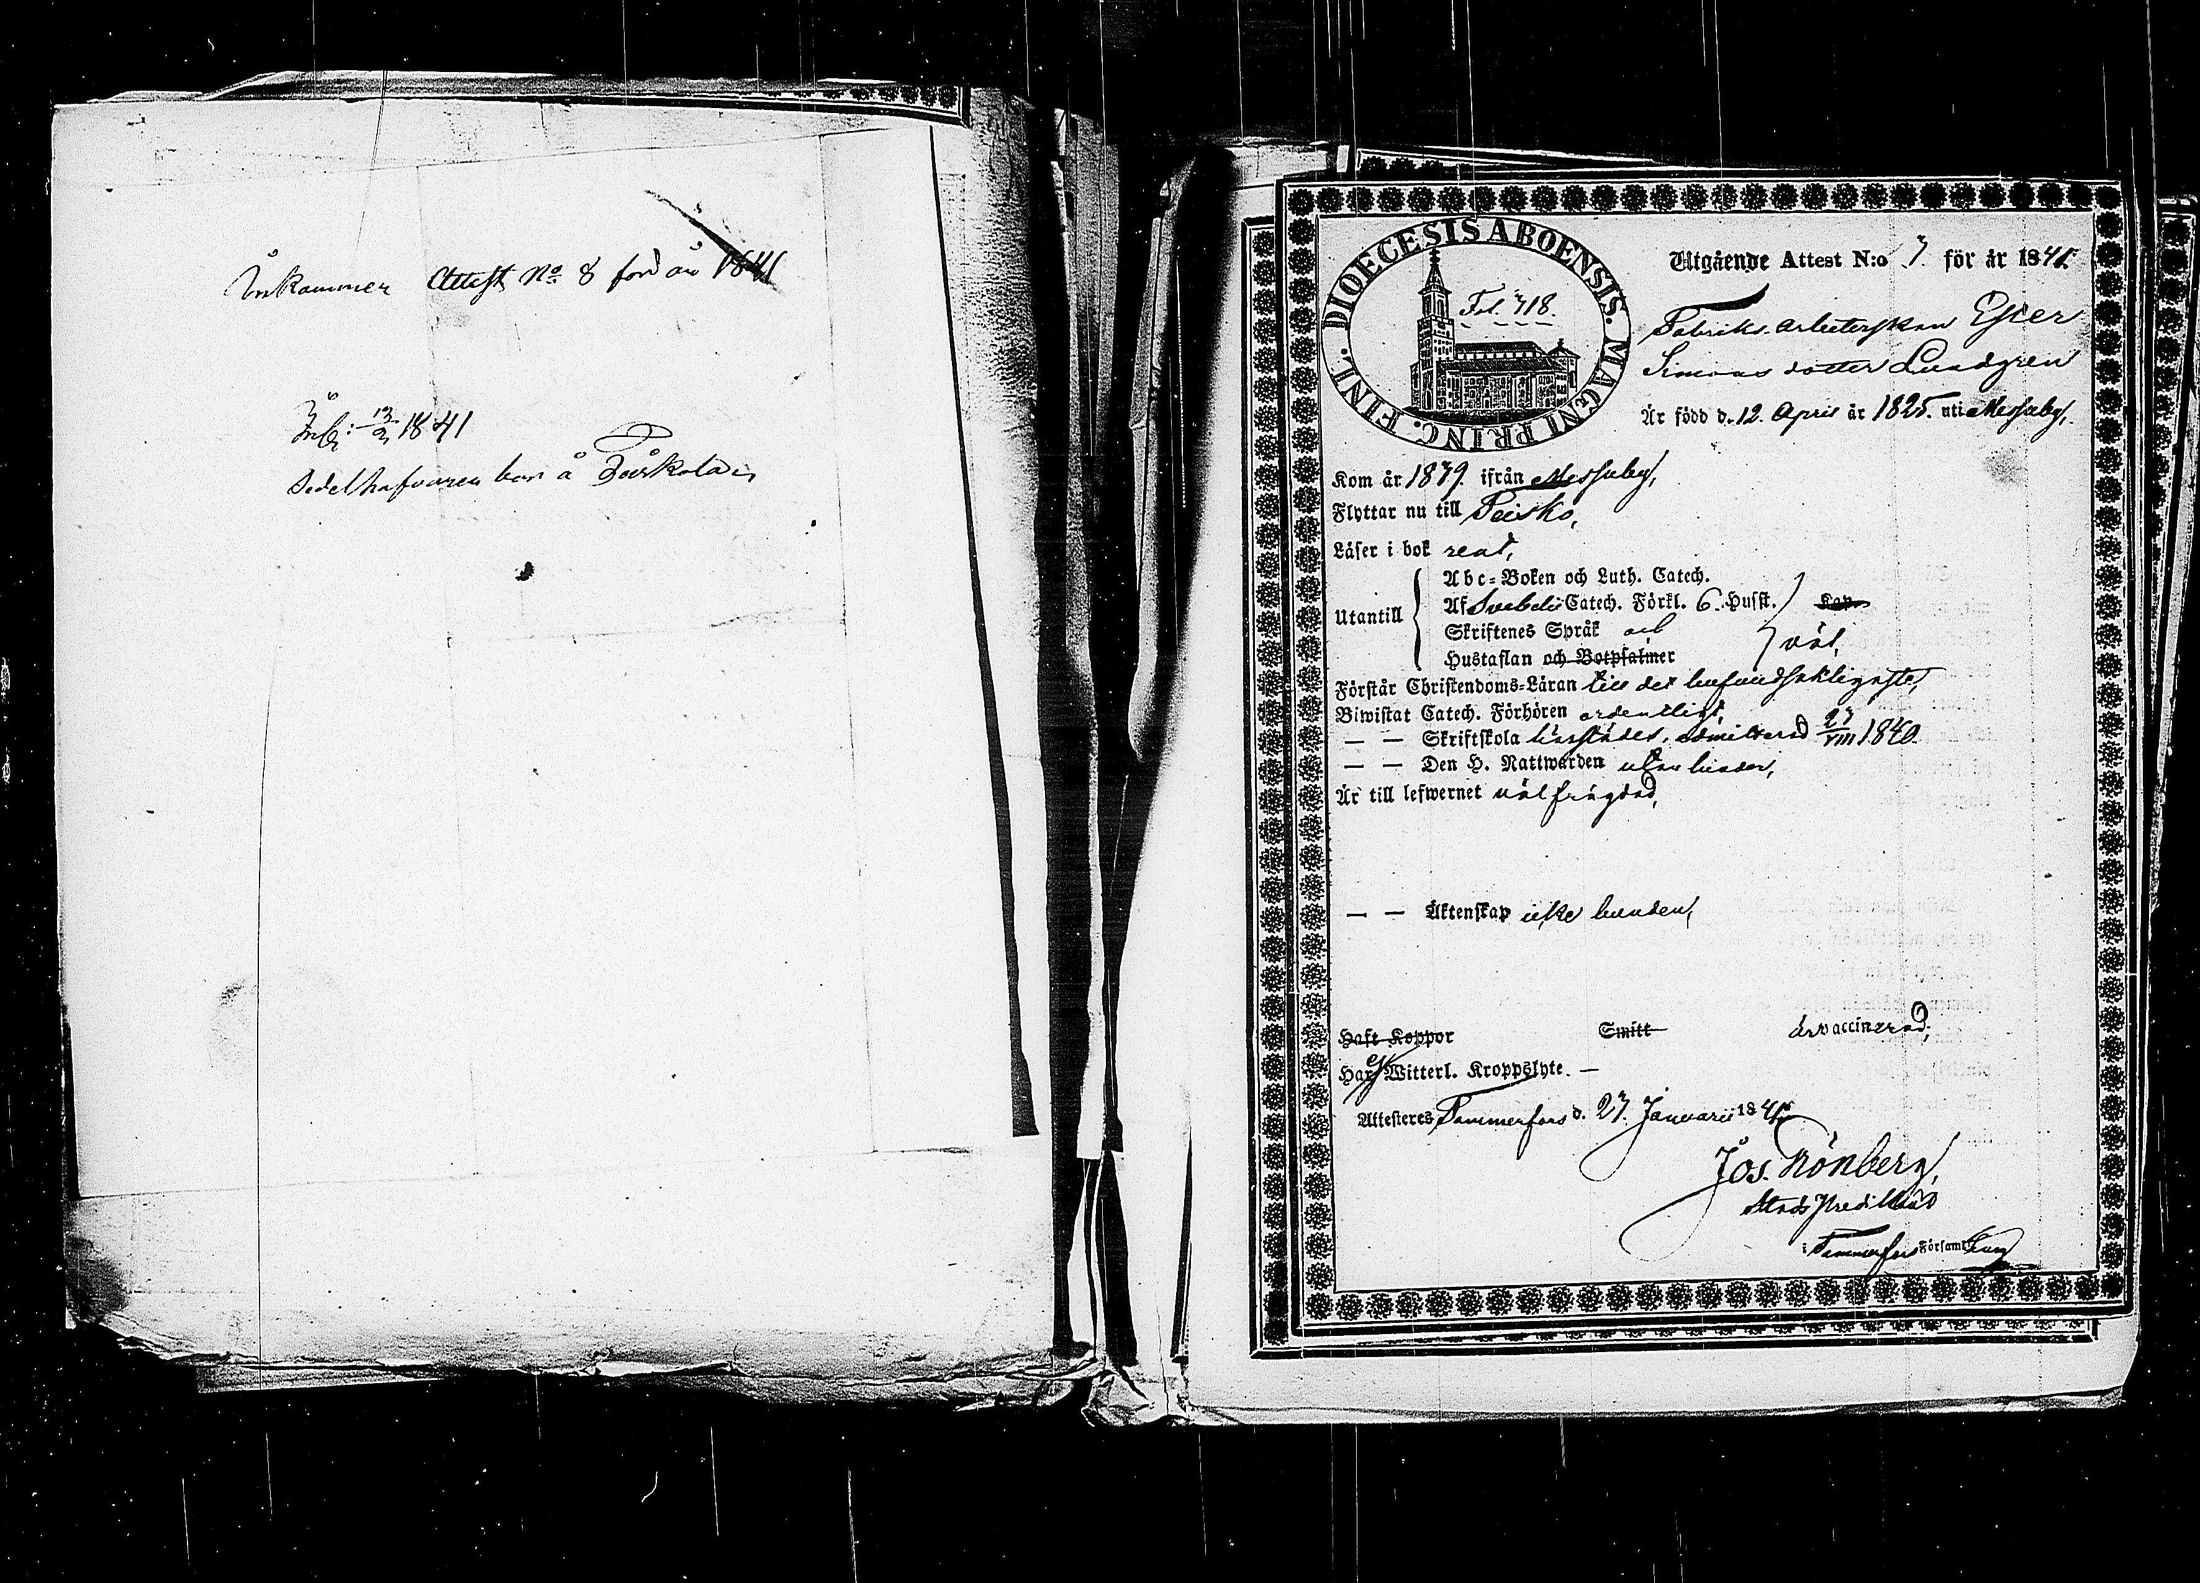 Inkommen Attest No 8 för år 1841
Inl: 12/2 1841
Sedelhafvaren bor å
DIOECESIS ABOENSIS. MAGNI PRINC. FINL.
Fol. 718.
Utgående Attest N:o 7. för år 1841.
Fabriks-arbeterskan Ester
Simonsdotter Lundgren
Är född d. 12. April år 1825. uti Messuby,
Kom år 1839. ifrån Messuby,
Flyttar nu till Teisko,
Läser i bok rent,
Utantill
Abc-Boken och Luth. Catech.
Af Svebelii Catech. Förkl. 6. Hufst. Kap
Skriftenes Språk och
Hustaflan och Botpsalmer väl,
Förstår Christendoms-Läran till det hufvudsakligaste,
Biwistat Catech. Förhören ordentligt,
— — Skriftskola härstädes, admitterad 27/VIII 1840.
— — Den H. Nattwarden utan hinder,
Är till lefwernet välfrägdad,
— — Äktenskap icke bunden,
Haft Koppor Smitt är vaccinerad,
Har ej Witterl. Kroppslyte. —
Attesteres Tammerfors d. 27. Januarii 1841.
Jos. Grönberg,
Stads Predikant
i Tammerfors Församling